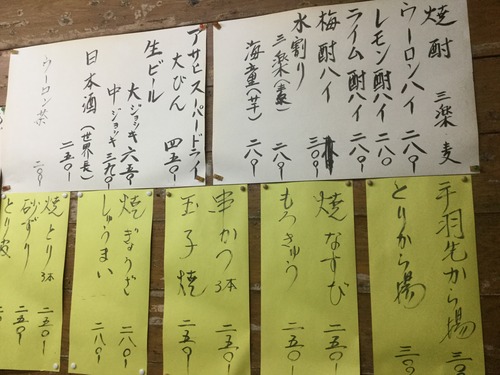 焼酎 三楽 麦
ウーロンハイ 二八〇
レモン酎ハイ 二八〇
ライム酎ハイ 二八〇
梅酎ハイ 三〇〇
水割り
三楽(麦) 二八〇
海童(芋) 二八〇
アサヒスーパードライ
大びん 四五〇
生ビール
大ジョッキ 六五〇
中ジョッキ 三九〇
日本酒(世界長) 二五〇
ウーロン茶 二〇
手羽先から揚 三〇
とりから揚 三〇
焼なすび 二五〇
もろきゅう 二五〇
串かつ 3本 二五〇
玉子焼 二五〇
焼ぎょうざ 二八〇
しゅうまい 二八〇
焼とり 3本 二五〇
砂ずり 二五〇
とり皮